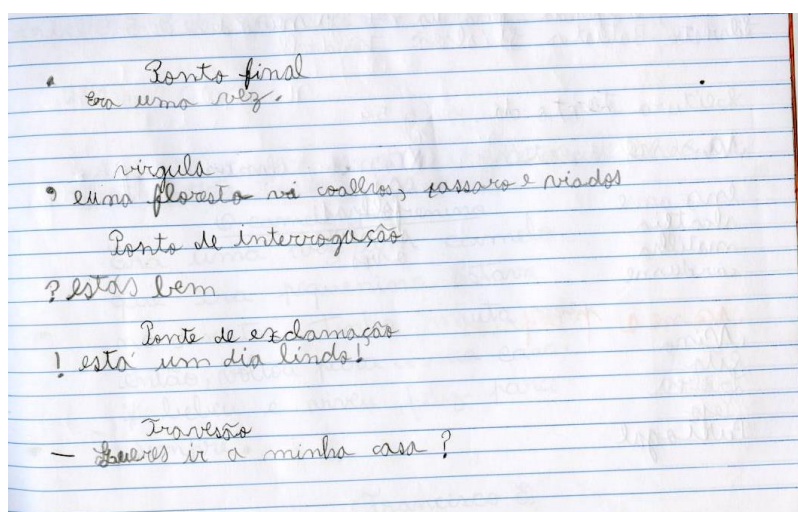 . Ponto final
Era uma vez.
virgula
, eu na floresta vi coalhos, passaro e viados
Ponto de interrogação
? estás bem
Ponte de exclamação
! está um dia lindo!
Travesão
— Queres ir a minha casa ?